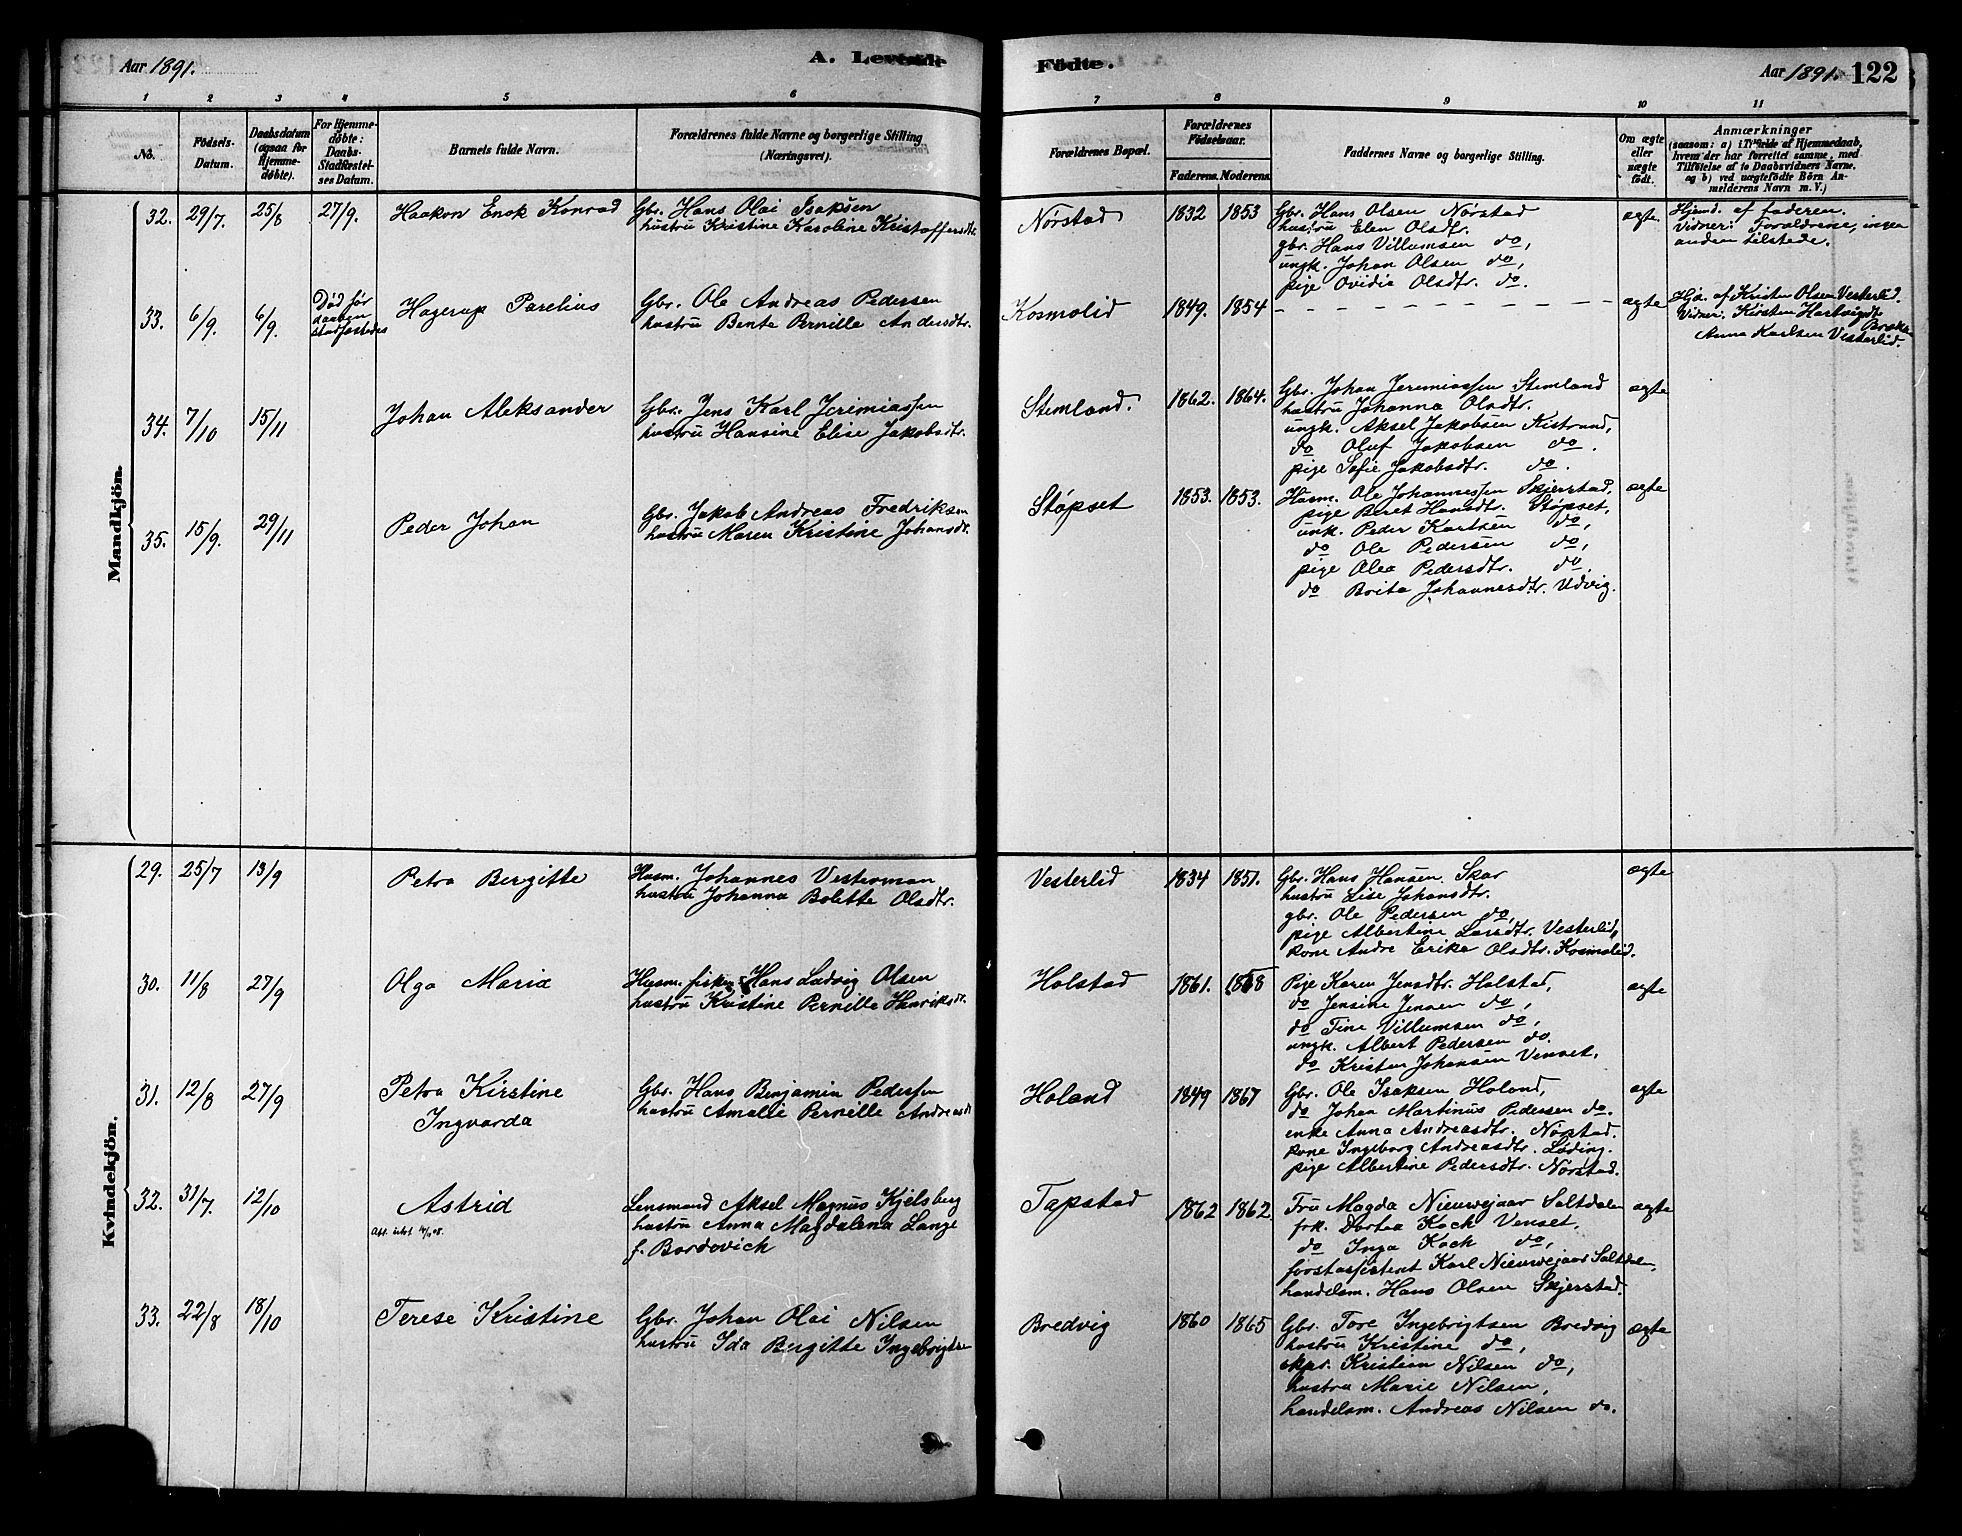 Aar 1891.
A. Levende
Fødte.
Aar 1891.
122
1 2 3 4 5 6 7 8 9 10 11
No.
Fødsels-
Datum.
Daabsdatum
(ogsaa for
Hjemme-
døbte).
For Hjemme-
døbte:
Daabs-
Stadfæstel-
ses Datum.
Barnets fulde Navn.
Forældrenes fulde Navne og borgerlige Stilling
(Næringsvei).
Forældrenes Bopæl.
Forældrenes
Fødselsaar.
Faderens. Moderens.
Faddernes Navne og borgerlige Stilling.
Om ægte
eller
uægte
født.
Anmærkninger
(saasom: a) i Tilfælde af Hjemmedaab,
hvem der har forrettet samme, med
Tilføielse af to Daabsvidners Navne.
og b) ved uægtefødte Børn An-
melderens Navn m. V.)
Mandkjön.
32. 29/7 25/8 27/9. Haakon Enok Konrad
Gbr. Hans Olai Isaksen
hustru Kristine Karoline Kristoffersdtr.
Nørstad 1832 1853
Gbr. Hans Olsen Nørstad
hustru Elen Olsdtr.
gbr. Hans Villumsen do,
ungk. Johan Olsen do,
pige Ovidia Olsdtr. do.
ægte
Hjemd. af faderen.
Vidner: Forældrene, ingen
anden tilstede.
33. 6/9. 6/9.
Død før
daaben
stadfæstedes
Hagerup Parelius
Gbr. Ole Andreas Pedersen
hustru Bente Pernille Andersdtr.
Kosmolid 1849. 1854 - - - - - - - - - -
ægte
Hjd. af Kristen Olsen Vesterlid.
Vidner: Kirsten Hartvigdtr.
Anna Karlsen Vesterlid.
34. 7/10 15/11 Johan Aleksander
Gbr. Jens Karl Jerimiassen
hustru Hansine Elise Jakobsdtr.
Stemland. 1862. 1864.
Gbr. Johan Jeremiassen Stemland
hustru Johanna Olsdtr.
ungk. Aksel Jakobsen Kistrand,
do Oluf Jakobsen do.
pige Sofie Jakobsdtr. do.
ægte
35. 15/9. 29/11 Peder Johan
Gbr. Jakob Andreas Fredriksen
hustru Maren Kristine Johansdtr.
Støpset 1853. 1853.
Husm. Ole Johannessen Skjerstad,
pige Beret Hansdtr. Støpset,
unk. Peder Karlsen do,
do Ole Pedersen do,
pige Olea Pedersdtr. do.
do Brita Johannesdtr. Udvig.
ægte
Kvindekjön.
29. 25/7 13/9 Petra Bergitte
Husm. Johannes Vesterman
hustru Johanna Bolette Olsdtr.
Vesterlid 1834 1851.
Gbr. Hans Hansen Skar
hustru Lise Johansdtr.
gbr. Ole Pedersen do,
pige Albertine Larsdtr. Vesterlid,
kone Andre Erika Olsdtr. Kosmolid.
ægte
30. 11/8 27/9 Olga Maria
Husm. fisker Hans Ludvig Olsen
hustru Kristine Pernille Henriksdtr.
Holstad 1861. 1858
Pige Karen Jensdtr. Holstad,
do Jensine Jensen do,
do Tine Villumsen do,
ungk. Albert Pedersen do.
do Kristen Johansen Venset.
ægte
31. 12/8 27/9 Petra Kirstine
Ingvarda
Gbr. Hans Benjamin Pedersen
hustru Amalie Pernille Andreasdt
Holand 1849 1867
Gbr. Ole Isaksen Holand,
do Johan Martinus Pedersen do.
enke Anna Andreasdtr. Nørstad.
kone Ingeborg Andreasdtr. Løding.
pige Albertine Pedersdtr. Nørstad.
ægte
32. 31/7. 12/10 Astrid
Lensmand Aksel Magnus Kjelsberg
hustru Anna Magdalena Lange
f. Bordovich
Tapstad 1862 1862.
Fru Magda Nieuwejaar Saltdalen
frk. Dortea Koch Venset,
do Inga Koch do,
forstassistent Karl Nieuwejaar Saltdalen,
handelsm. Hans Olsen Skjerstad.
ægte
33. 22/8 18/10 Terese Kristine
Gbr. Johan Olai Nilsen
hustru Ida Bergitte Ingebrigtsen
Bredvig 1860 1865
Gbr. Tore Ingebrigtsen Bredvig
hustru Kristine do,
skpr. Kristian Nilsen do,
hustru Marie Nilsen,
handelsm. Andreas Nilsen do.
ægte